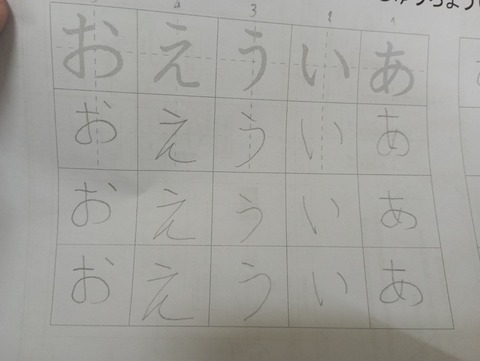 3 2 1
お え う い あ
お え う い あ
お え う い あ
お え う い あ